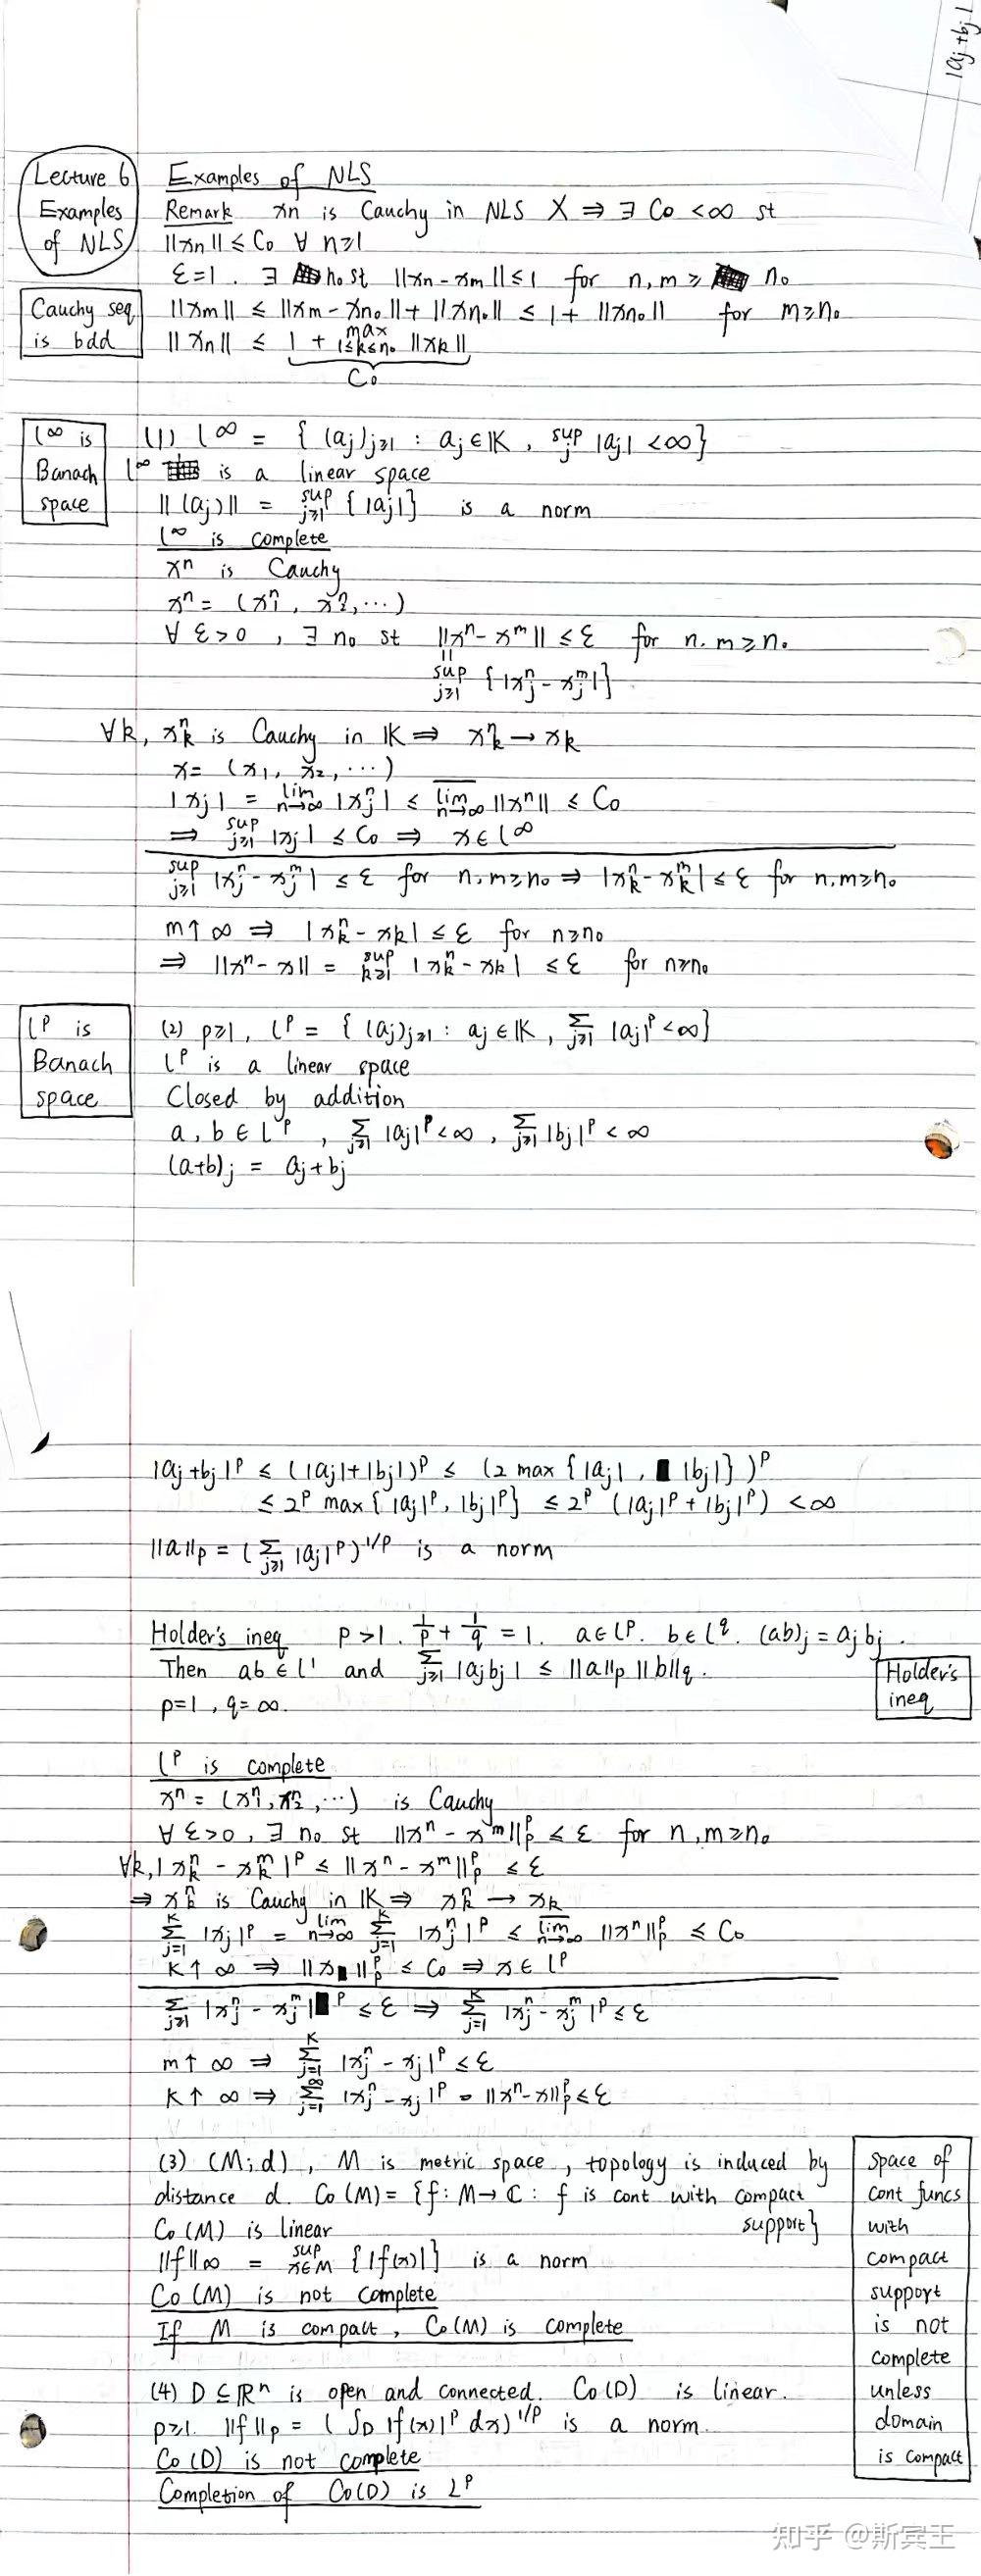 |aj+bj|
Lecture 6
Examples
of NLS
Examples of NLS
Remark xn is Cauchy in NLS X ⇒ ∃ C₀ <∞ st
||xn|| ≤ C₀ ∀ n≥1
ε=1. ∃ n₀ st ||xn - xm|| ≤ 1 for n, m ≥ n₀
Cauchy seq
is bdd
||xm|| ≤ ||xm - xn₀|| + ||xn₀|| ≤ 1 + ||xn₀|| for m≥n₀
||xn|| ≤ 1 + max_{1≤k≤n₀} ||xk||
C₀
l^∞ is
Banach
space
(1) l^∞ = { (aj)_{j≥1} : aj ∈ K, sup_j |aj| <∞}
l^∞ is a linear space
||(aj)|| = sup_{j≥1} {|aj|} is a norm
l^∞ is complete
x^n is Cauchy
x^n = (x_1^n, x_2^n, ···)
∀ ε>0, ∃ n₀ st ||x^n - x^m|| ≤ ε for n, m ≥ n₀
||
sup_{j≥1} {|x_j^n - x_j^m|}
∀k, x_k^n is Cauchy in K ⇒ x_k^n → xk
x = (x₁, x₂, ···)
|xj| = lim_{n→∞} |x_j^n| ≤ \overline{lim}_{n→∞} ||x^n|| ≤ C₀
⇒ sup_{j≥1} |xj| ≤ C₀ ⇒ x∈l^∞
sup_{j≥1} |x_j^n - x_j^m| ≤ ε for n, m≥n₀ ⇒ |x_k^n - x_k^m| ≤ ε for n, m≥n₀
m↑∞ ⇒ |x_k^n - xk| ≤ ε for n≥n₀
⇒ ||x^n - x|| = sup_{k≥1} |x_k^n - xk| ≤ ε for n≥n₀
l^p is
Banach
space
(2) p≥1, l^p = { (aj)_{j≥1} : aj ∈ K, Σ_{j≥1} |aj|^p <∞}
l^p is a linear space
Closed by addition
a, b ∈ l^p, Σ_{j≥1} |aj|^p <∞, Σ_{j≥1} |bj|^p <∞
(a+b)j = aj+bj
|aj+bj|^p ≤ (|aj|+|bj|)^p ≤ (2 max {|aj|, |bj|})^p
≤ 2^p max{|aj|^p, |bj|^p} ≤ 2^p (|aj|^p + |bj|^p) <∞
||a||p = (Σ_{j≥1} |aj|^p)^{1/p} is a norm
Holder's ineq p>1. 1/p + 1/q = 1. a∈l^p. b∈l^q. (ab)j = aj bj.
Then ab ∈ l¹ and Σ_{j≥1} |aj bj| ≤ ||a||p ||b||q.
Holder's
ineq
p=1, q=∞.
l^p is complete
x^n = (x_1^n, x_2^n, ···) is Cauchy
∀ ε>0, ∃ n₀ st ||x^n - x^m||_p^p ≤ ε for n, m≥n₀
∀k, |x_k^n - x_k^m|^p ≤ ||x^n - x^m||_p^p ≤ ε
⇒ x_k^n is Cauchy in K ⇒ x_k^n → xk
Σ_{j=1}^K |xj|^p = lim_{n→∞} Σ_{j=1}^K |x_j^n|^p ≤ \overline{lim}_{n→∞} ||x^n||_p^p ≤ C₀
K↑∞ ⇒ ||x||_p^p ≤ C₀ ⇒ x∈l^p
Σ_{j≥1} |x_j^n - x_j^m|^p ≤ ε ⇒ Σ_{j=1}^K |x_j^n - x_j^m|^p ≤ ε
m↑∞ ⇒ Σ_{j=1}^K |x_j^n - xj|^p ≤ ε
K↑∞ ⇒ Σ_{j=1}^∞ |x_j^n - xj|^p = ||x^n - x||_p^p ≤ ε
(3) (M; d), M is metric space, topology is induced by
distance d. C₀(M) = {f: M→ℂ : f is cont with compact
support}
C₀(M) is linear
||f||∞ = sup_{x∈M} {|f(x)|} is a norm
C₀(M) is not complete
If M is compact, C₀(M) is complete
space of
cont funcs
with
compact
support
is not
complete
unless
domain
is compact
(4) D ⊆ ℝ^n is open and connected. C₀(D) is linear.
p≥1. ||f||p = (∫_D |f(x)|^p dx)^{1/p} is a norm.
C₀(D) is not complete
Completion of C₀(D) is L^p
知乎 @斯宾王